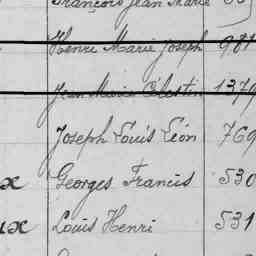 François Jean Marie
Henri Marie Joseph 981
Jean Marie Célestin 1379
Joseph Louis Léon 769
x Georges Francis 530
ux Louis Henri 531